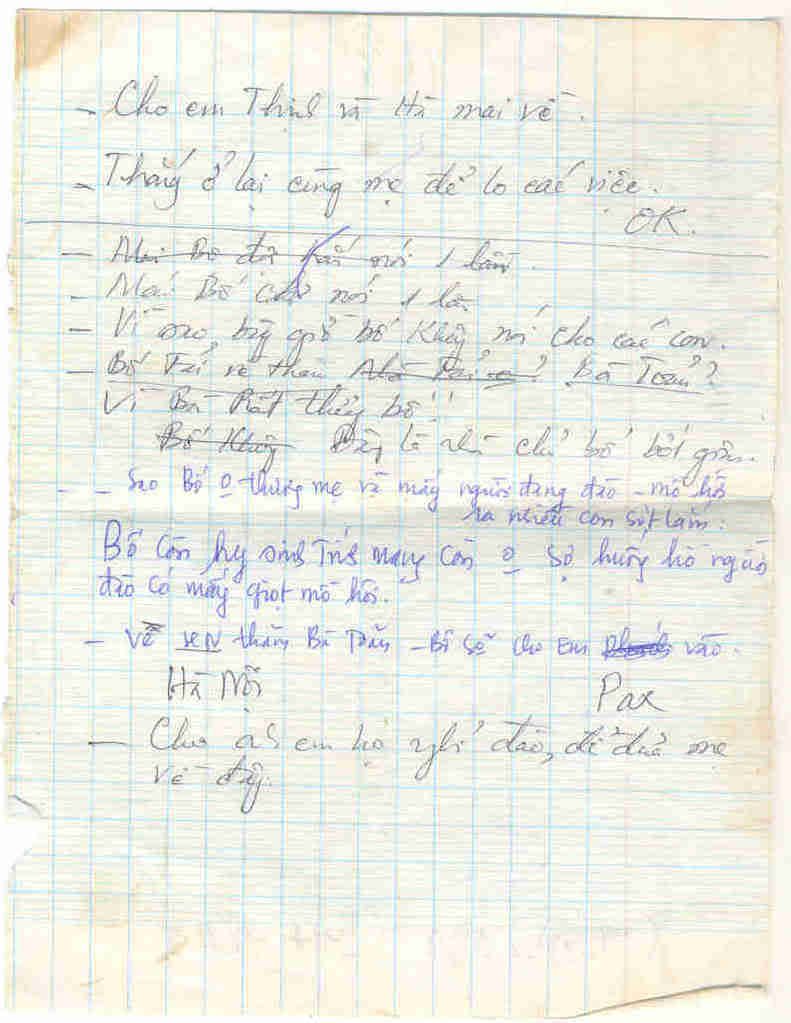 - Cho em Thịnh và Hà mai về.
- Thắng ở lại cùng mẹ để lo các việc.
OK.
- Mai Bố nói 1 lần.
- Mai Bố chỉ nói 1 lần
- Vì sao, bây giờ bố Không nói cho các con.
- Bố về thăm Bà Toán?
Vì Bà Rất bố!!
Bố Không Đây là bố bớt
- - Sao Bố o thương mẹ và mấy người đang đào - mồ hôi
ra nhiều con sót lắm.
Bố Còn hy sinh Tính mạng Còn o sợ huống hồ người
đào có mấy giọt mồ hôi.
- Về HN thăm Bà Toán - Bố sẽ cho em vào.
Hà Nội Pax
- Cho anh em họ nghỉ đào, để đưa mẹ
về đây.